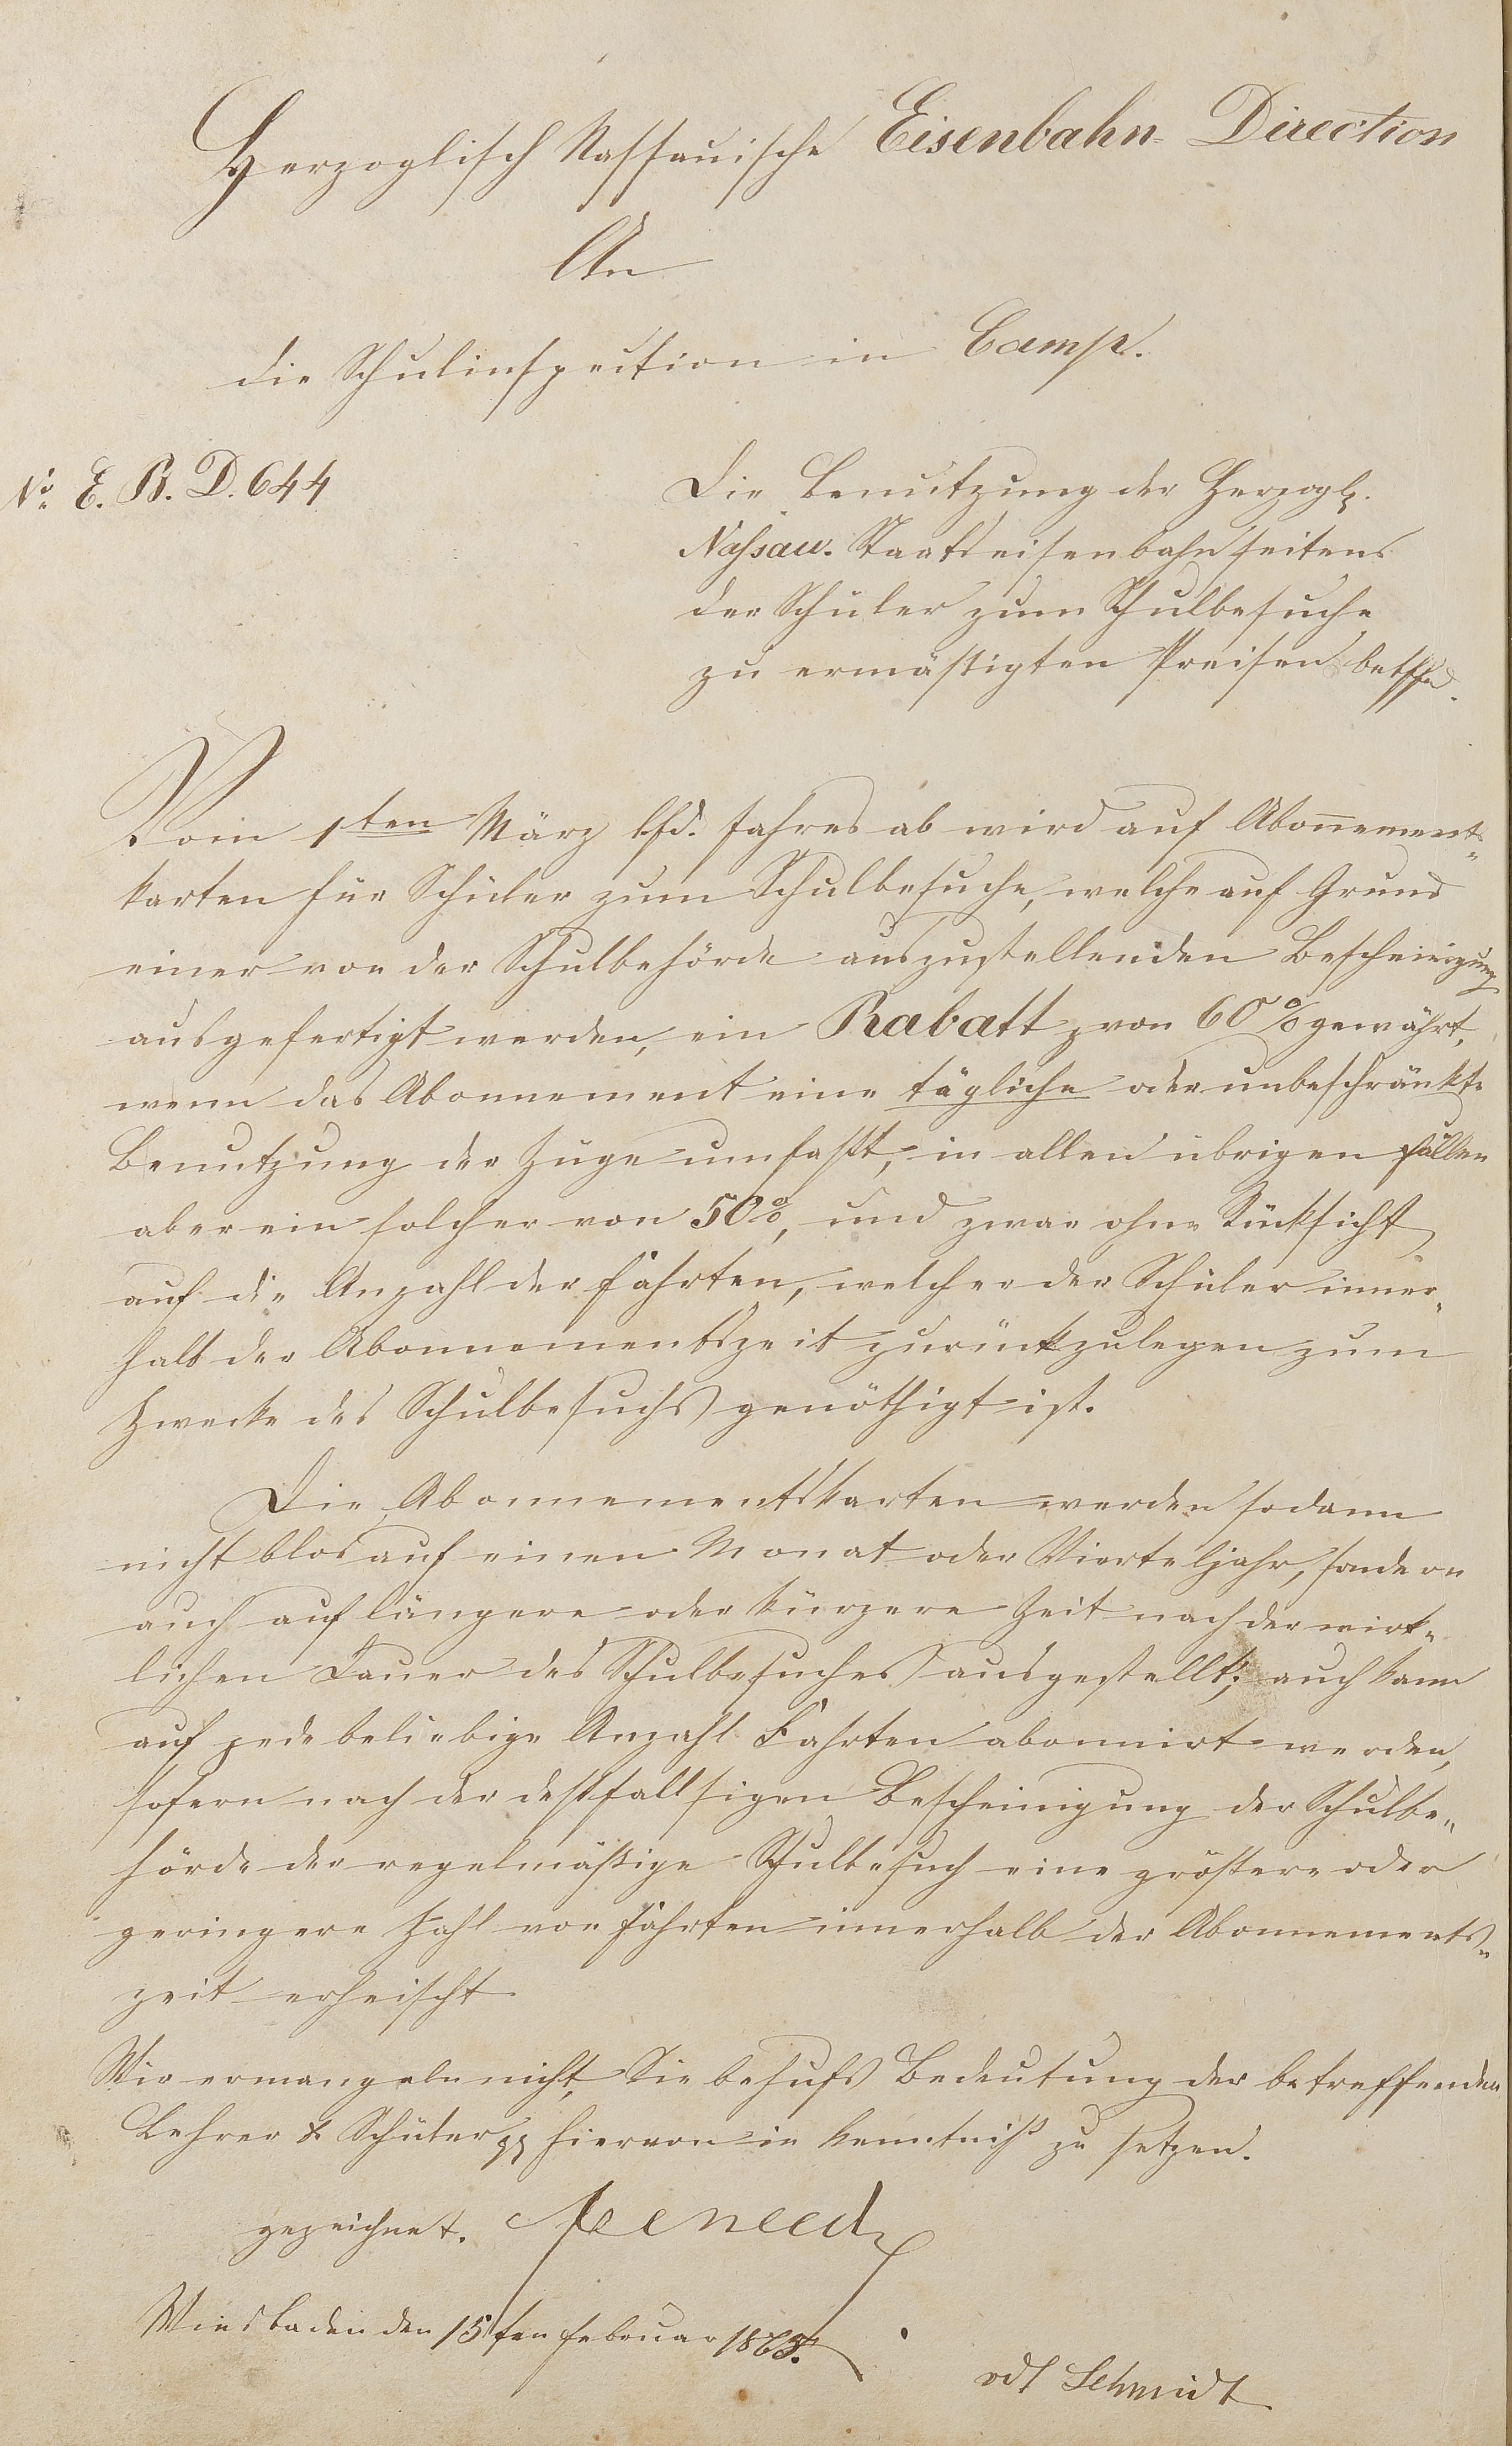 Herzoglisch Nassauische Eisenbahn-Direction
An
die Schulinspection in Camp.
No. E. B. D. 644
Die Benutzung der Herzogl.
Nassau. Staatseisenbahn seitens
der Schüler zum Schulbesuche
zu ermäßigten Preisen betffd.
Vom 1ten März lfd. Jahres ab wird auf Abonnements-
karten für Schüler zum Schulbesuche, welche auf Grund
einer von der Schulbehörde auszustellenden Bescheinigung
ausgefertigt werden, ein Rabatt von 60% gewährt,
wenn das Abonnement eine tägliche oder unbeschränkte
Benutzung der Züge umfaßt, in allen übrigen Fällen
aber ein solcher von 50%, und zwar ohne Rücksicht
auf die Anzahl der Fahrten, welche der Schüler inner-
halb der Abonnementszeit zurückzulegen zum
Zwecke des Schulbesuchs genöthigt ist.
Die Abonnementskarten werden sodann
nicht blos auf einen Monat oder Vierteljahr, sondern
auch auf längere oder kürzere Zeit nach der wirk-
lichen Dauer des Schulbesuches ausgestellt; auch kann
auf jede beliebige Anzahl Fahrten abonnirt werden,
sofern nach der deßfallsigen Bescheinigung der Schulbe-
hörde der regelmäßige Schulbesuch eine größere oder
geringere Zahl von Fahrten innerhalb der Abonnements-
zeit erheischt
Wir ermangeln nicht, Sie behufs Bedeutung der betreffenden
Lehrer & Schüler hiervon in Kenntniß zu setzen.
gezeichnet.
Wiesbaden den 15ten Februar 1865.
vdt Schmidt